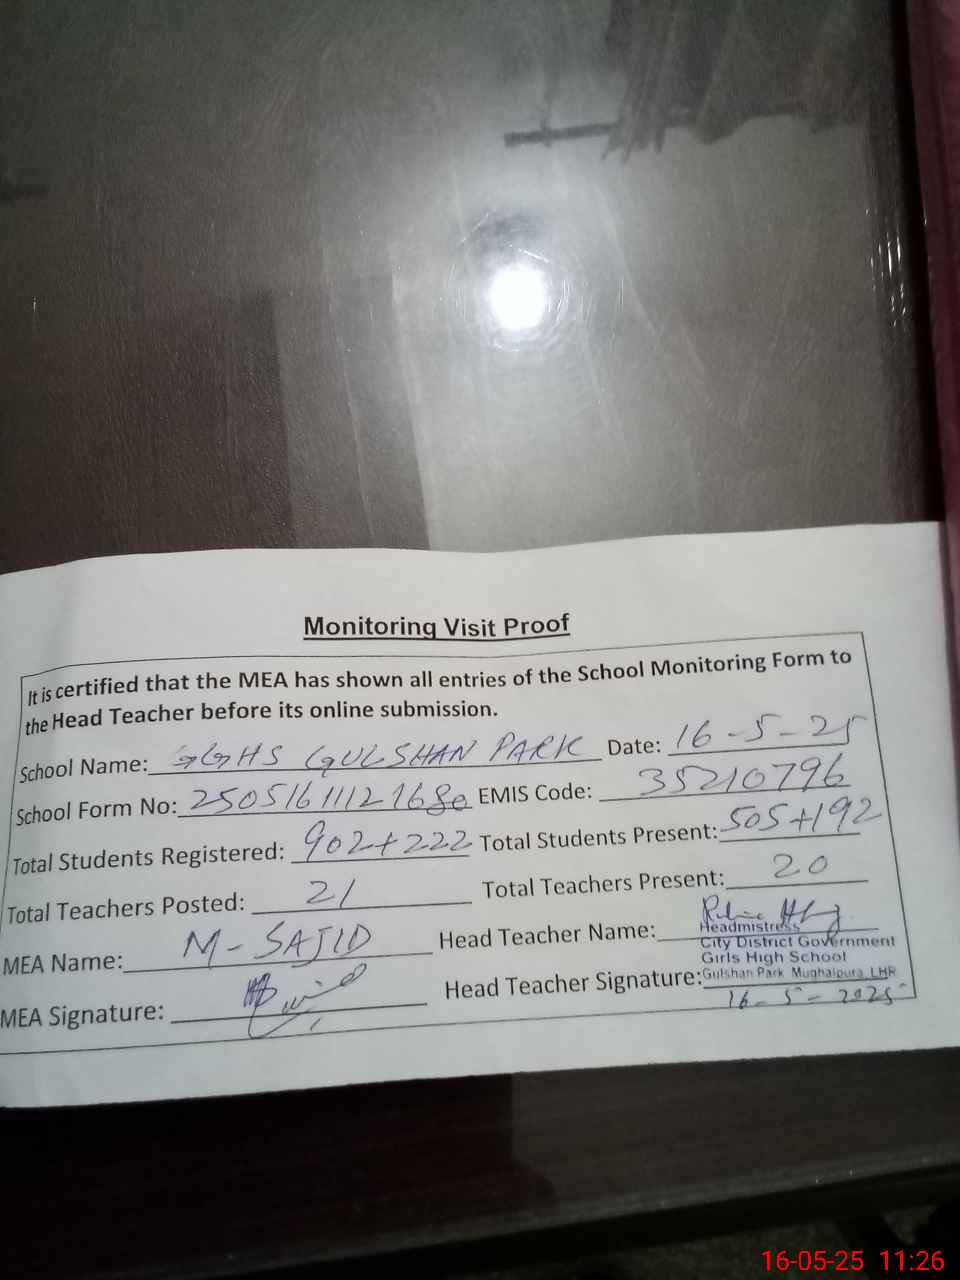 Monitoring Visit Proof
It is certified that the MEA has shown all entries of the School Monitoring Form to
the Head Teacher before its online submission.
School Name: GGHS GULSHAN PARK Date: 16-5-25
School Form No: 2505161112168e EMIS Code: 35210796
Total Students Registered: 902+222 Total Students Present: 505+192
Total Teachers Posted: 21 Total Teachers Present: 20
MEA Name: M-SAJID Head Teacher Name:
Headmistress
City District Government
Girls High School
MEA Signature: Head Teacher Signature: Gulshan Park Mughalpura, LHR
16-5-2025
16-05-25 11:26